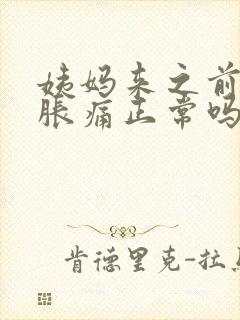 姨妈来之前
胀痛正常吗
肯德里克-拉